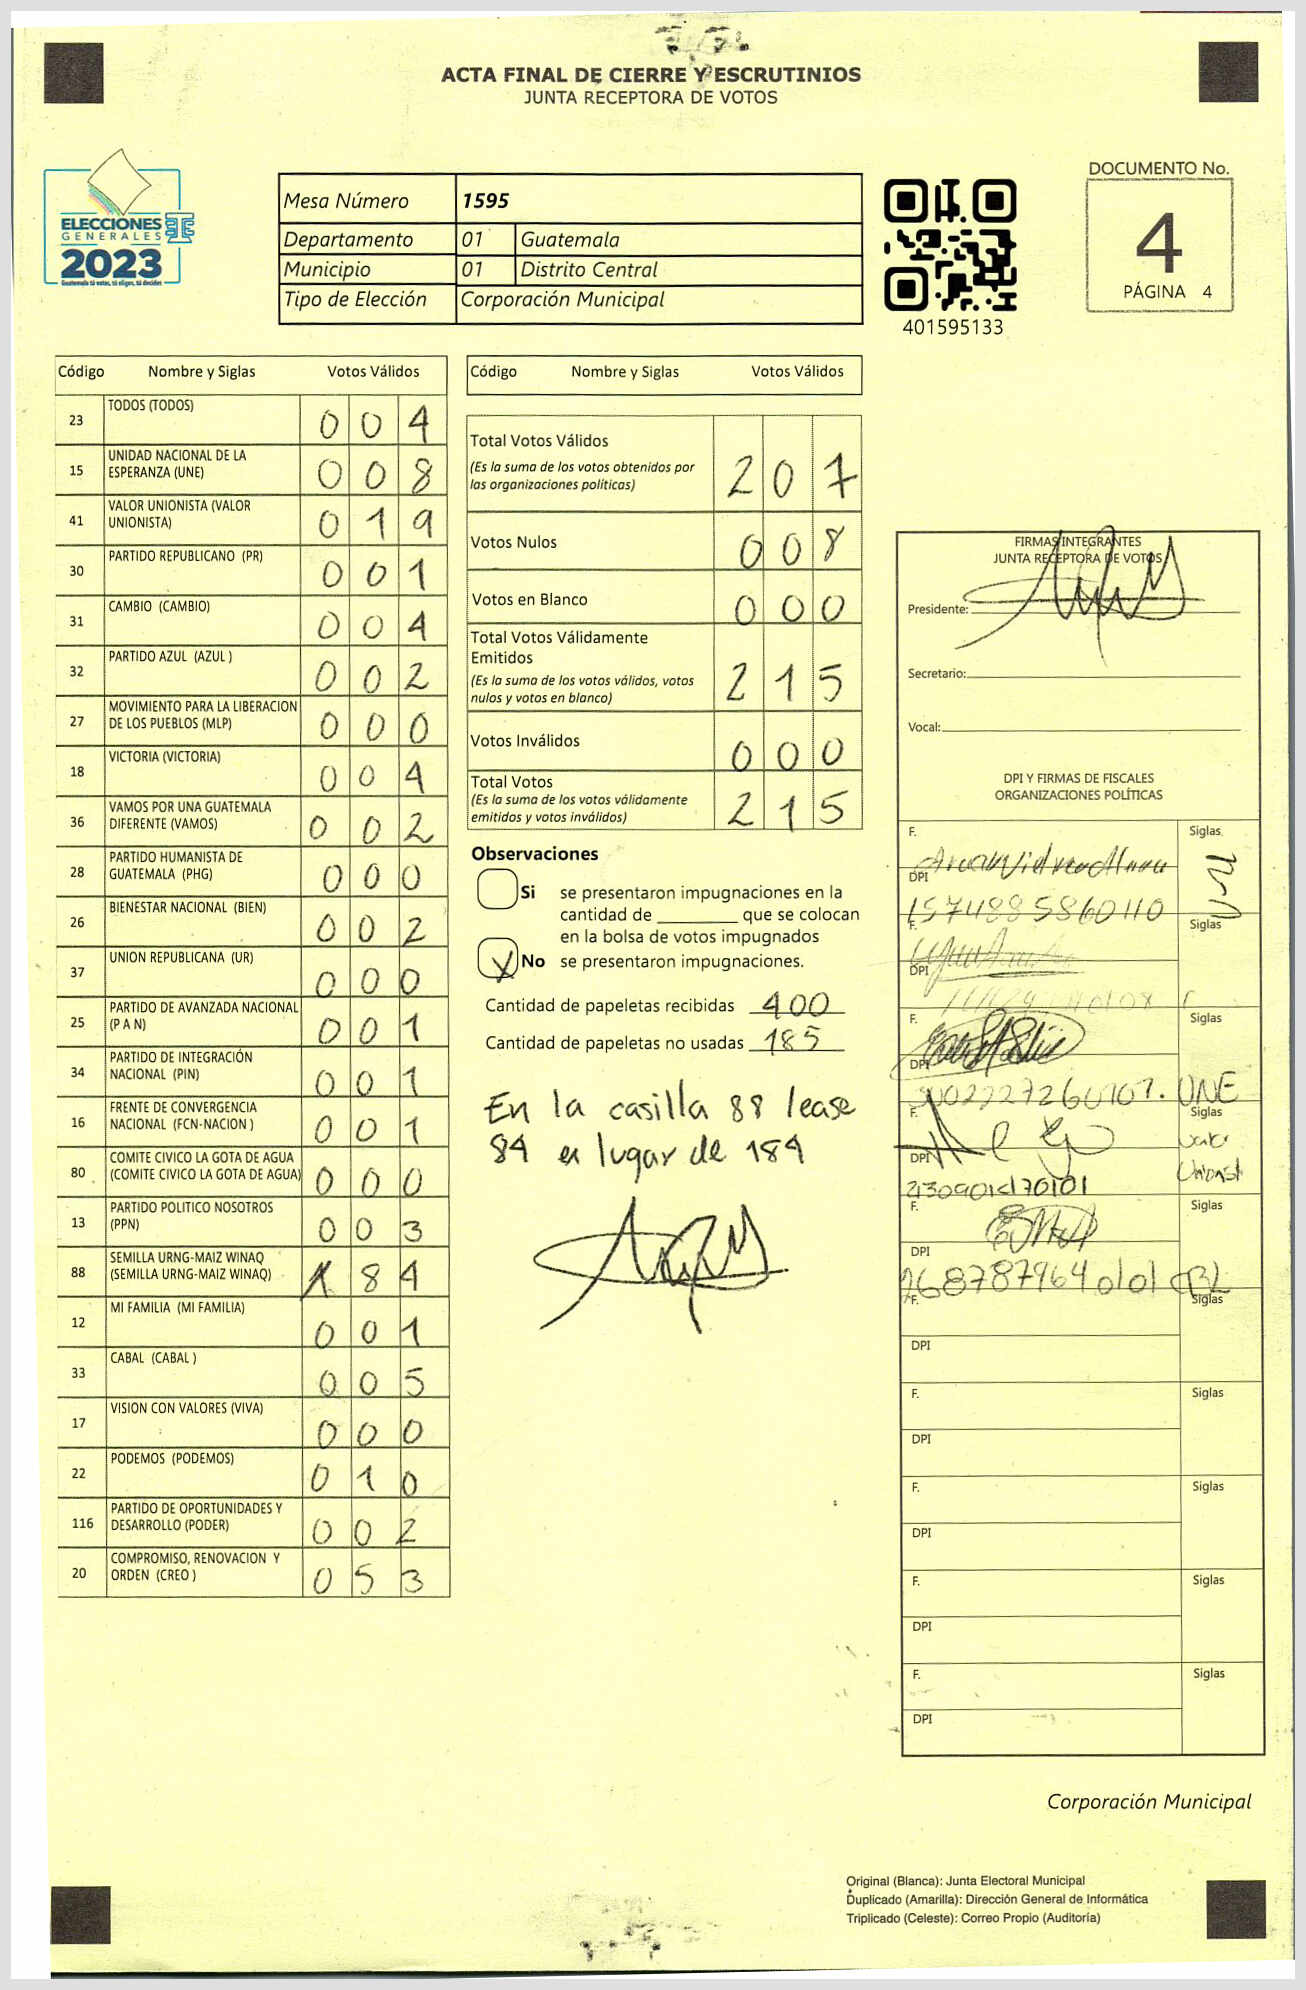 ACTA FINAL DE CIERRE Y ESCRUTINIOS
JUNTA RECEPTORA DE VOTOS
ELECCIONES
GENERALES
2023
Guatemala tú votas, tú eliges, tú decides
Mesa Número 1595
Departamento 01 Guatemala
Municipio 01 Distrito Central
Tipo de Elección Corporación Municipal
401595133
DOCUMENTO No.
4
PÁGINA 4
Código Nombre y Siglas Votos Válidos
23 TODOS (TODOS) 0 0 4
15 UNIDAD NACIONAL DE LA ESPERANZA (UNE) 0 0 8
41 VALOR UNIONISTA (VALOR UNIONISTA) 0 1 9
30 PARTIDO REPUBLICANO (PR) 0 0 1
31 CAMBIO (CAMBIO) 0 0 4
32 PARTIDO AZUL (AZUL ) 0 0 2
27 MOVIMIENTO PARA LA LIBERACION DE LOS PUEBLOS (MLP) 0 0 0
18 VICTORIA (VICTORIA) 0 0 4
36 VAMOS POR UNA GUATEMALA DIFERENTE (VAMOS) 0 0 2
28 PARTIDO HUMANISTA DE GUATEMALA (PHG) 0 0 0
26 BIENESTAR NACIONAL (BIEN) 0 0 2
37 UNION REPUBLICANA (UR) 0 0 0
25 PARTIDO DE AVANZADA NACIONAL (P A N) 0 0 1
34 PARTIDO DE INTEGRACIÓN NACIONAL (PIN) 0 0 1
16 FRENTE DE CONVERGENCIA NACIONAL (FCN-NACION ) 0 0 1
80 COMITE CIVICO LA GOTA DE AGUA (COMITE CIVICO LA GOTA DE AGUA) 0 0 0
13 PARTIDO POLITICO NOSOTROS (PPN) 0 0 3
88 SEMILLA URNG-MAIZ WINAQ (SEMILLA URNG-MAIZ WINAQ) 1 8 4
12 MI FAMILIA (MI FAMILIA) 0 0 1
33 CABAL (CABAL ) 0 0 5
17 VISION CON VALORES (VIVA) 0 0 0
22 PODEMOS (PODEMOS) 0 1 0
116 PARTIDO DE OPORTUNIDADES Y DESARROLLO (PODER) 0 0 2
20 COMPROMISO, RENOVACION Y ORDEN (CREO ) 0 5 3
Código Nombre y Siglas Votos Válidos
Total Votos Válidos 2 0 7
(Es la suma de los votos obtenidos por
las organizaciones politicas)
Votos Nulos 0 0 8
Votos en Blanco 0 0 0
Total Votos Válidamente
Emitidos 2 1 5
(Es la suma de los votos válidos, votos
nulos y votos en blanco)
Votos Inválidos 0 0 0
Total Votos 2 1 5
(Es la suma de los votos válidamente
emitidos y votos inválidos)
Observaciones
Si se presentaron impugnaciones en la
cantidad de ________ que se colocan
en la bolsa de votos impugnados
X No se presentaron impugnaciones.
Cantidad de papeletas recibidas 400
Cantidad de papeletas no usadas 185
En la casilla 88 lease
84 en lugar de 184
FIRMAS INTEGRANTES
JUNTA RECEPTORA DE VOTOS
Presidente:
Secretario:
Vocal:
DPI Y FIRMAS DE FISCALES
ORGANIZACIONES POLÍTICAS
F. Siglas
DPI 1574885860110
F. Siglas
DPI
F. Siglas
DPI UNE
F. Siglas
DPI
F. Siglas
DPI
F. Siglas
DPI
F. Siglas
DPI
F. Siglas
DPI
F. Siglas
DPI
F. Siglas
DPI
Corporación Municipal
Original (Blanca): Junta Electoral Municipal
Duplicado (Amarilla): Dirección General de Informática
Triplicado (Celeste): Correo Propio (Auditoría)